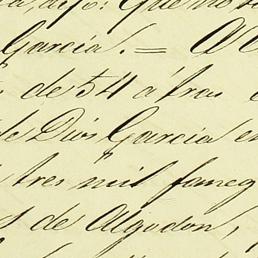 a, dijo: Que no
Garcia. = A
de 54 á tras
de Dios Garcia en
tres mil faneg
s de Algodon,